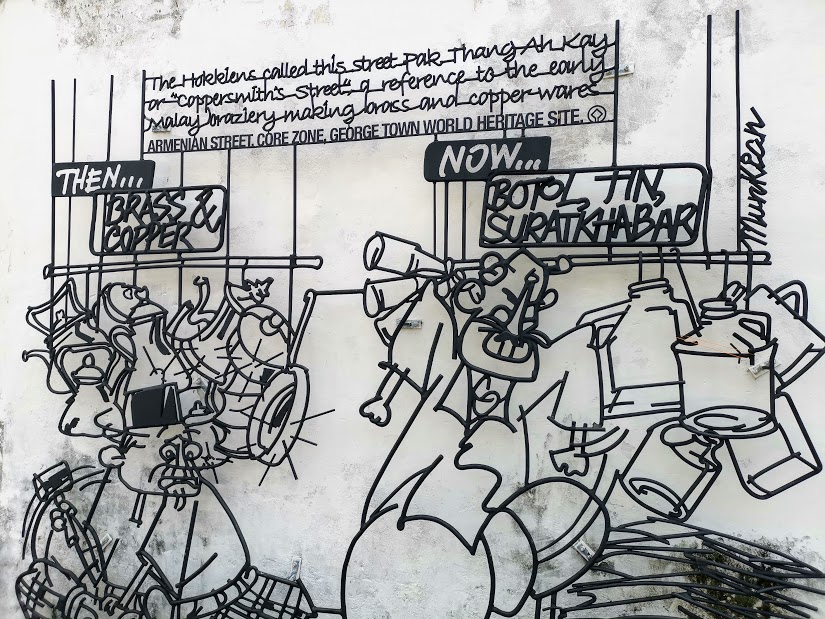 The Hokkiens called this street Pak Thang Ah Kay
or "Coppersmith's Street" a reference to the early
Malay braziery making brass and copper wares
ARMENIAN STREET, CORE ZONE, GEORGE TOWN WORLD HERITAGE SITE.
THEN...
BRASS &
COPPER
NOW...
BOTOL, TIN,
SURATKHABAR
Munkian